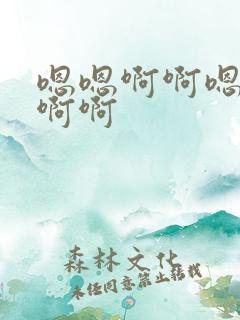 嗯嗯啊啊嗯
啊啊
森林文化
未经同意禁止转载